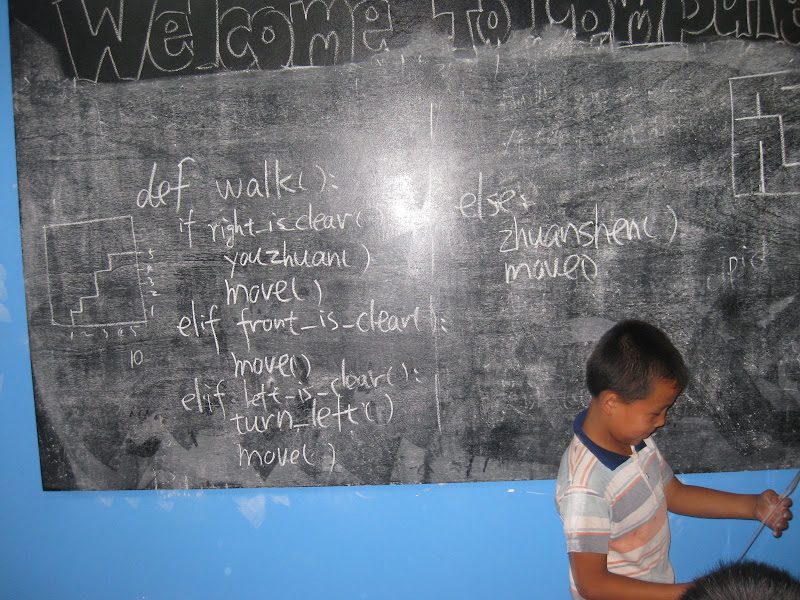 Welcome to Compute
def walk():
if right_is_clear(
youzhuan()
move()
elif front_is_clear():
move()
elif left_is_clear():
turn_left()
move()
else:
zhuanshen()
move()
5
4
3
2
1
1 2 3 4 5
10